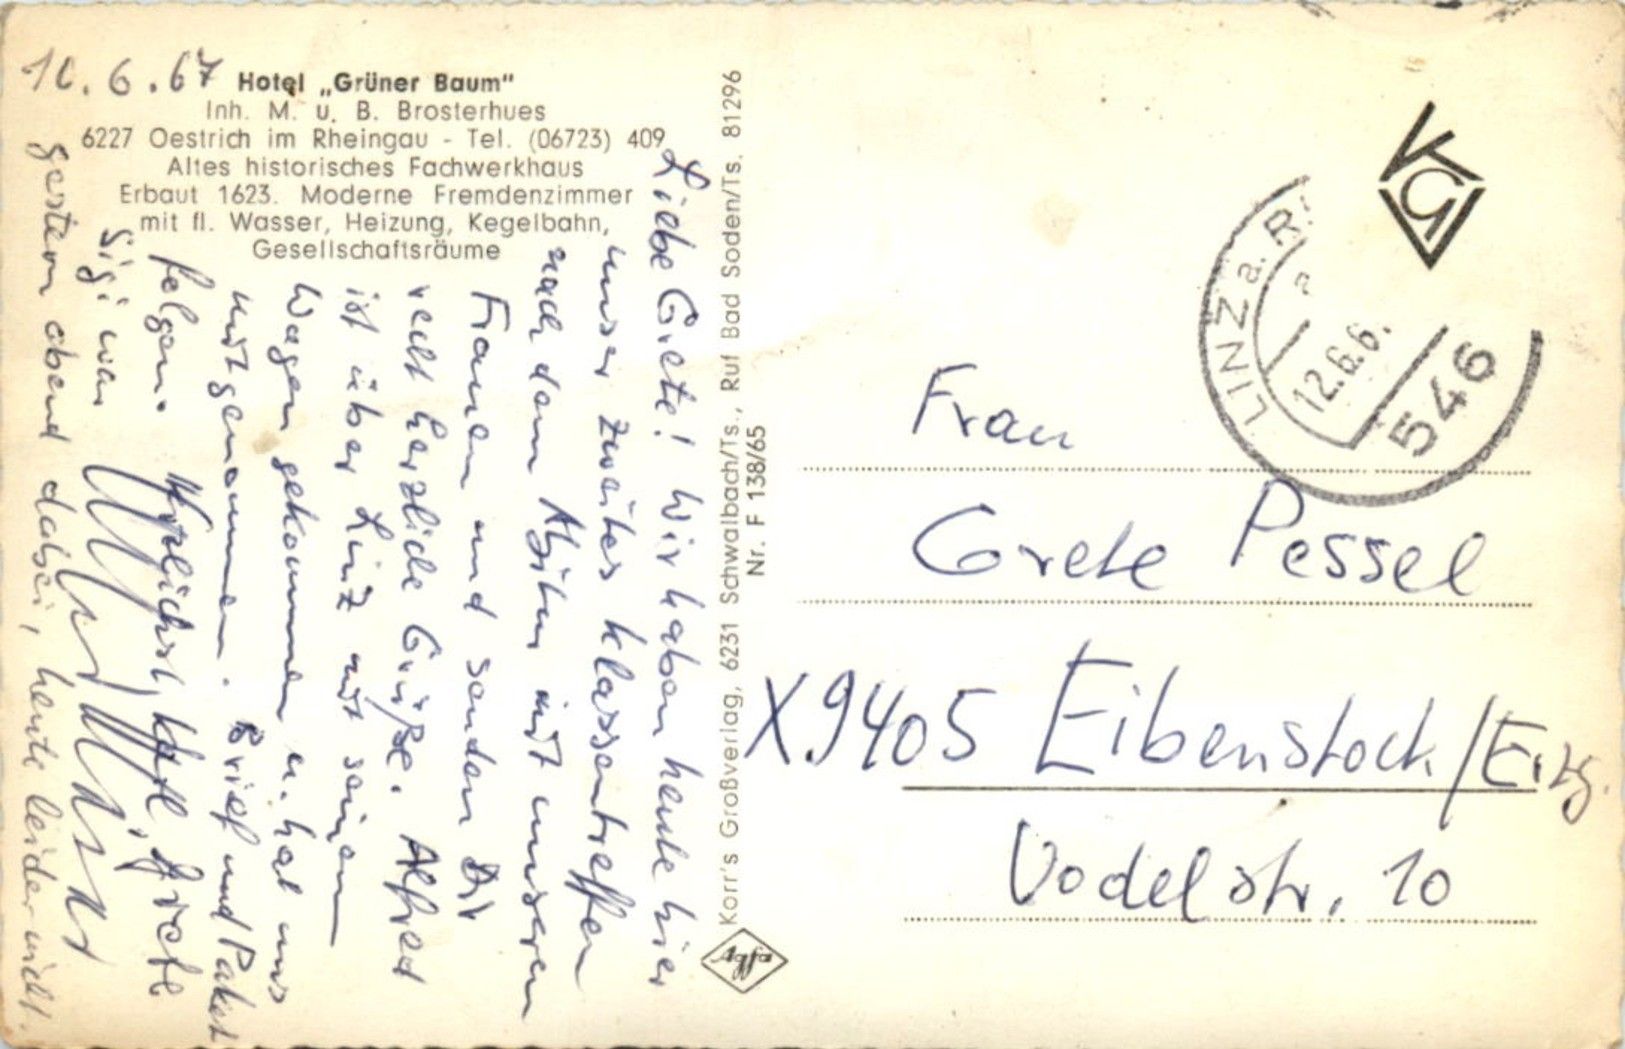 10.6.67
Hotel „Grüner Baum"
Inh. M. u. B. Brosterhues
6227 Oestrich im Rheingau - Tel. (06723) 409
Altes historisches Fachwerkhaus
Erbaut 1623. Moderne Fremdenzimmer
mit fl. Wasser, Heizung, Kegelbahn,
Gesellschaftsräume
Liebe Grete! Wir haben heute hier
unser zweites Klassentreffen
nach dem Abitur mit unseren
Frauen und senden Dir
recht herzliche Grüße. Alfred
ist über Linz mit seinem
Wagen gekommen u. hat uns
mitgenommen. Brief und Paket
folgen. Herzlichst
Sigi war
gestern abend dabei, heute leider nicht.
Korr's Großverlag, 6231 Schwalbach/Ts., Ruf Bad Soden/Ts. 81296
Nr. F 138/65
Agfa
KG
LINZ a. R
a
12.6.6
546
Frau
Grete Pessel
X9405 Eibenstock/Erzg.
Vodelstr. 10